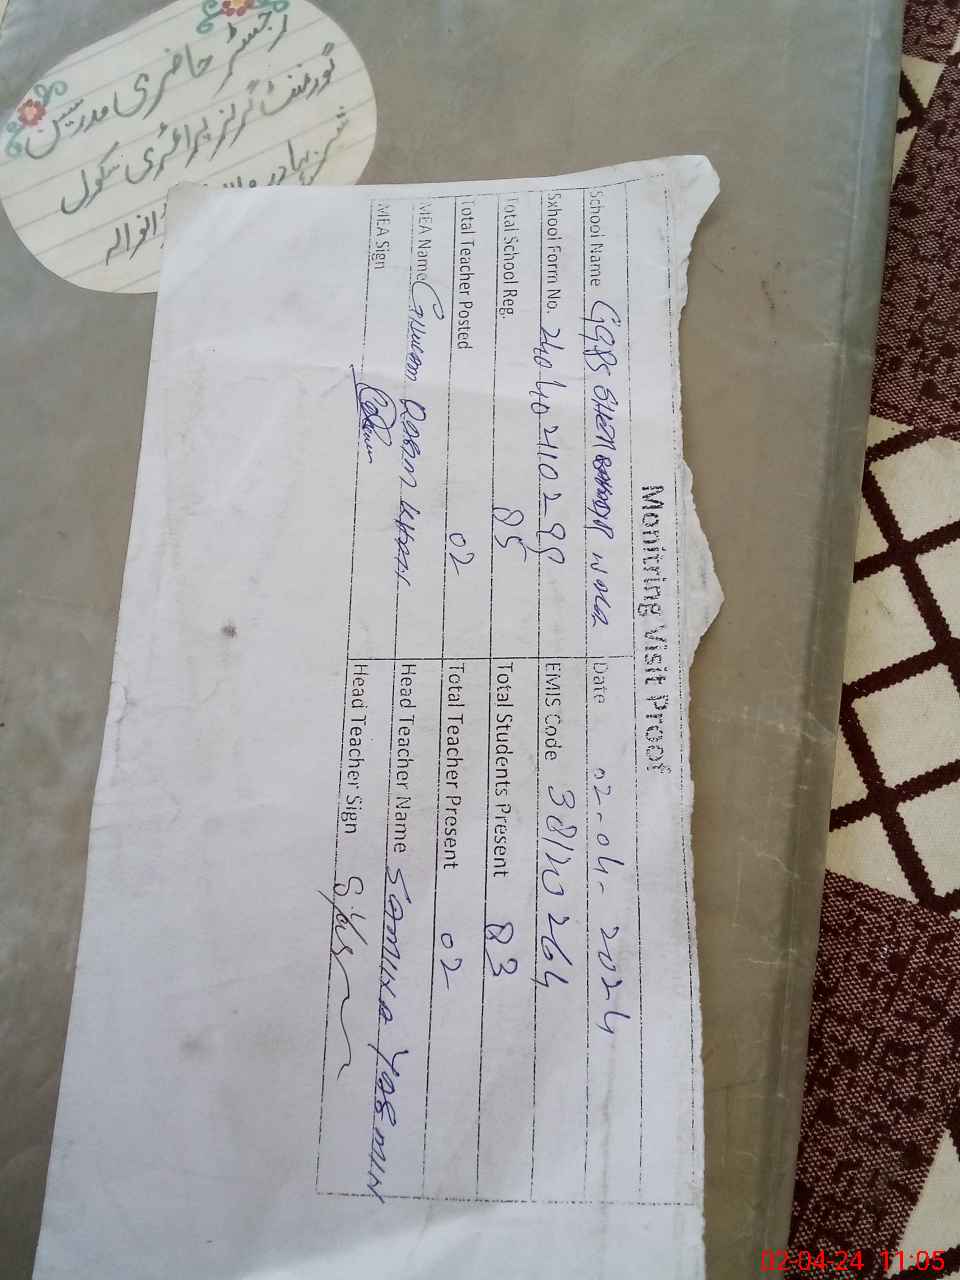 رجسٹر حاضری مدرسین
گورنمنٹ گرلز پرائمری سکول
شیر بہادر
Monitring Visit Proof
School Name GGPS SHER BAHADUR WALA Date 02-04-2024
Sxhool Form No. 240402110299 EMIS Code 38120264
Total School Reg. 85 Total Students Present 83
Total Teacher Posted 02 Total Teacher Present 02
MEA Name Head Teacher Name SAMINA YASMIN
MEA Sign Head Teacher Sign
02-04-24 11:05